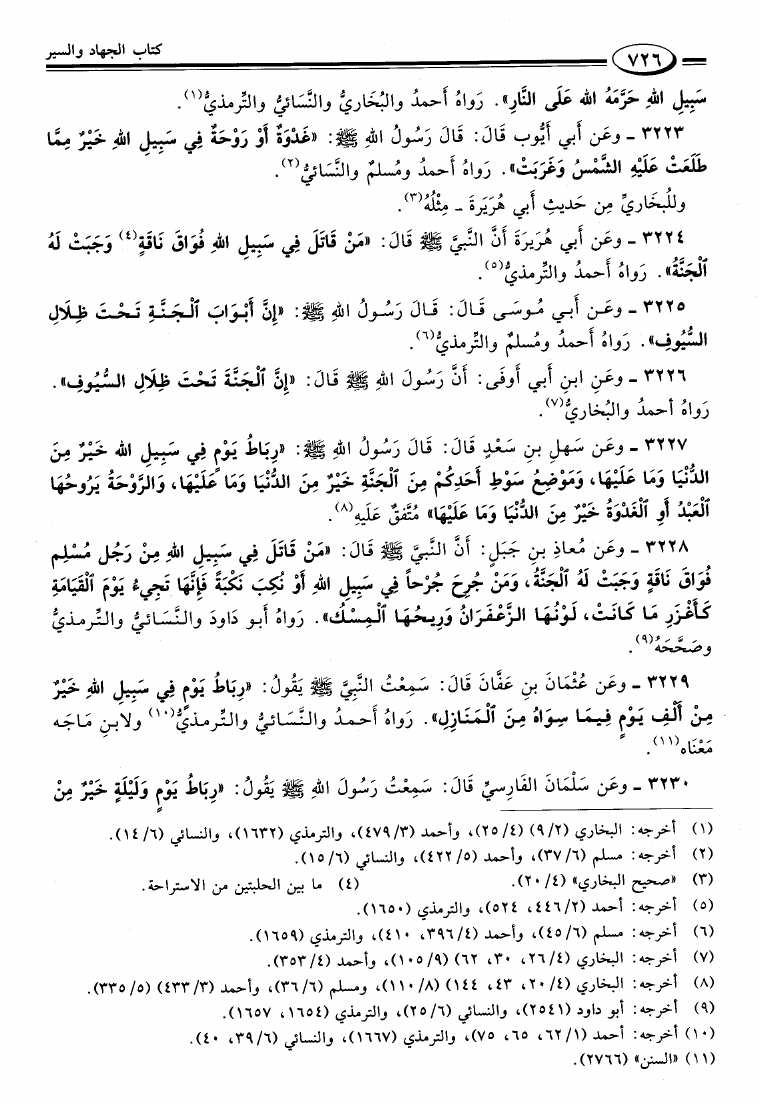 ٧٢٦ كتاب الجهاد والسير
سَبِيلِ اللهِ حَرَّمَهُ الله عَلَى النَّارِ». رَوَاهُ أَحمدُ والبُخَاريُّ والنَّسَائيُّ والتِّرمذيُّ(١).
٣٢٢٣ ـ وعَن أَبي أَيُّوب قَالَ: قَالَ رَسُولُ اللهِ ﷺ: «غَدْوَةٌ أَوْ رَوْحَةٌ فِي سَبِيلِ اللهِ خَيْرٌ مِمَّا
طَلَعَتْ عَلَيْهِ الشَّمْسُ وَغَرَبَتْ». رَواهُ أَحمدُ ومُسلمٌ والنَّسَائيُّ(٢).
وللْبُخَاريِّ مِن حَديثِ أَبي هُرَيرَةَ ـ مِثْلُهُ(٣).
٣٢٢٤ ـ وعَن أَبي هُرَيرَةَ أَنَّ النَّبيَّ ﷺ قَالَ: «مَنْ قَاتَلَ فِي سَبِيلِ اللهِ فُوَاقَ نَاقَةٍ(٤) وَجَبَتْ لَهُ
ٱلْجَنَّةُ». رَواهُ أَحمدُ والتِّرمذيُّ(٥).
٣٢٢٥ ـ وعَن أَبي مُوسَى قَالَ: قَالَ رَسُولُ اللهِ ﷺ: «إِنَّ أَبْوَابَ ٱلْجَنَّةِ تَحْتَ ظِلَالِ
السُّيُوفِ». رَواهُ أَحمدُ ومُسلمٌ والتِّرمذيُّ(٦).
٣٢٢٦ ـ وعَنِ ابنِ أَبي أَوفَى: أَنَّ رَسُولَ اللهِ ﷺ قَالَ: «إِنَّ ٱلْجَنَّةَ تَحْتَ ظِلَالِ السُّيُوفِ».
رَواهُ أحمدُ والبُخَاريُّ(٧).
٣٢٢٧ ـ وعَن سَهلِ بنِ سَعْدٍ قَالَ: قَالَ رَسُولُ اللهِ ﷺ: «رِبَاطُ يَوْمٍ فِي سَبِيلِ الله خَيْرٌ مِنَ
الدُّنْيَا وَمَا عَلَيْهَا، وَمَوْضِعُ سَوْطِ أَحَدِكُمْ مِنَ ٱلْجَنَّةِ خَيْرٌ مِنَ الدُّنْيَا وَمَا عَلَيْهَا، وَالرَّوْحَةُ يَرُوحُهَا
ٱلْعَبْدُ أَوِ ٱلْغَدْوَةُ خَيْرٌ مِنَ الدُّنْيَا وَمَا عَلَيْهَا» مُتَّفقٌ عَلَيهِ(٨).
٣٢٢٨ ـ وعَن مُعاذِ بنِ جَبَلٍ: أَنَّ النَّبيَّ ﷺ قَالَ: «مَنْ قَاتَلَ فِي سَبِيلِ اللهِ مِنْ رَجُلٍ مُسْلِمٍ
فُوَاقَ نَاقَةٍ وَجَبَتْ لَهُ ٱلْجَنَّةُ، وَمَنْ جُرِحَ جُرْحاً فِي سَبِيلِ اللهِ أَوْ نُكِبَ نَكْبَةً فَإِنَّهَا تَجِيءُ يَوْمَ ٱلْقِيَامَةِ
كَأَغْزَرِ مَا كَانَتْ، لَوْنُهَا الزَّعْفَرَانُ وَرِيحُهَا ٱلْمِسْكُ». رَواهُ أَبو دَاودَ والنَّسَائيُّ والتِّرمذيُّ
وصَحَّحَهُ(٩).
٣٢٢٩ ـ وعَن عُثْمَانَ بنِ عَفَّانَ قَالَ: سَمِعْتُ النَّبيَّ ﷺ يَقُولُ: «رِبَاطُ يَوْمٍ فِي سَبِيلِ اللهِ خَيْرٌ
مِنْ أَلْفِ يَوْمٍ فِيمَا سِوَاهُ مِنَ ٱلْمَنَازِلِ». رَواهُ أَحمدُ والنَّسَائيُّ والتِّرمذيُّ(١٠) ولابنِ مَاجَه
مَعْنَاه(١١).
٣٢٣٠ ـ وعَن سَلْمَانَ الفَارِسيِّ قَالَ: سَمِعْتُ رَسُولَ اللهِ ﷺ يَقُولُ: «رِبَاطُ يَوْمٍ وَلَيْلَةٍ خَيْرٌ مِنْ
(١) أخرجه: البخاري (٩/٢) (٢٥/٤)، وأحمد (٤٧٩/٣)، والترمذي (١٦٣٢)، والنسائي (١٤/٦).
(٢) أخرجه: مسلم (٣٧/٦)، وأحمد (٤٢٢/٥)، والنسائي (١٥/٦).
(٣) «صحيح البخاري» (٢٠/٤). (٤) ما بين الحلبتين من الاستراحة.
(٥) أخرجه: أحمد (٤٤٦/٢، ٥٢٤)، والترمذي (١٦٥٠).
(٦) أخرجه: مسلم (٤٥/٦)، وأحمد (٣٩٦/٤، ٤١٠)، والترمذي (١٦٥٩).
(٧) أخرجه: البخاري (٢٦/٤، ٣٠، ٦٢) (١٠٥/٩)، وأحمد (٣٥٣/٤).
(٨) أخرجه: البخاري (٢٠/٤، ٤٣، ١٤٤) (١١٠/٨)، ومسلم (٣٦/٦)، وأحمد (٤٣٣/٣) (٣٣٥/٥).
(٩) أخرجه: أبو داود (٢٥٤١)، والنسائي (٢٥/٦)، والترمذي (١٦٥٤، ١٦٥٧).
(١٠) أخرجه: أحمد (٦٢/١، ٦٥، ٧٥)، والترمذي (١٦٦٧)، والنسائي (٣٩/٦، ٤٠).
(١١) «السنن» (٢٧٦٦).